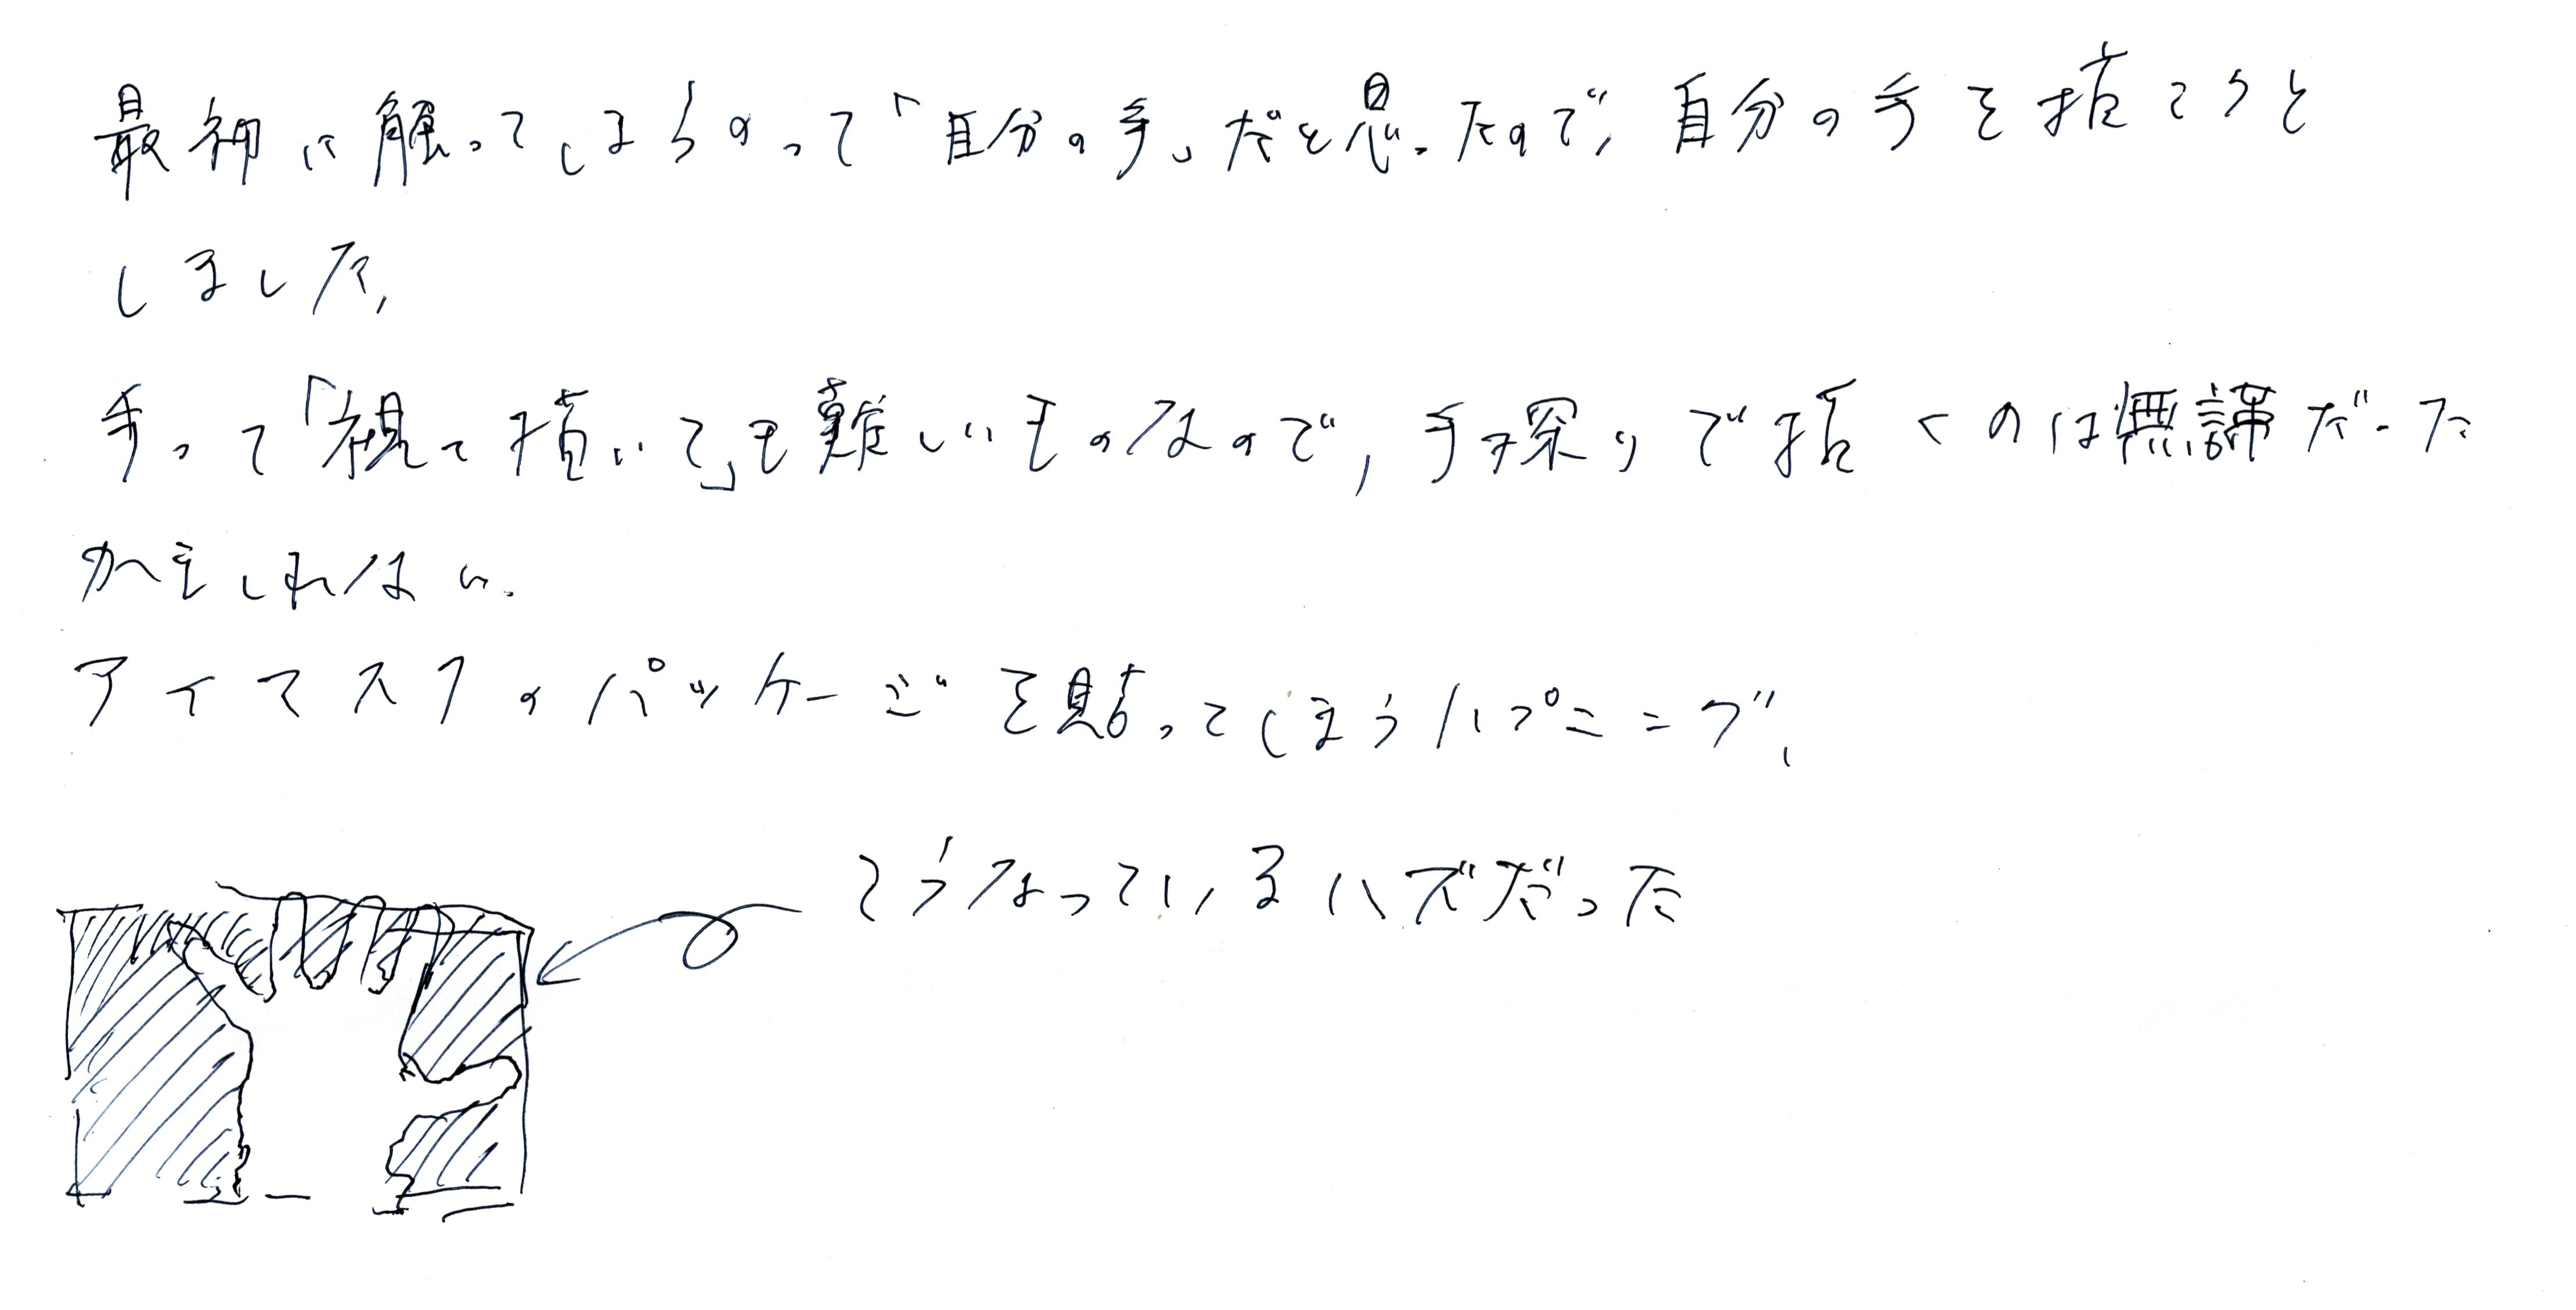 最初に触ってしまうのって「自分の手」だと思ったので、自分の手を描こうと
しました、
手って「視て描いて」も難しいものなので、手探りで描くのは無謀だった
かもしれない.
アイマスクのパッケージを貼ってしまうハプニング、
こうなっているハズだった